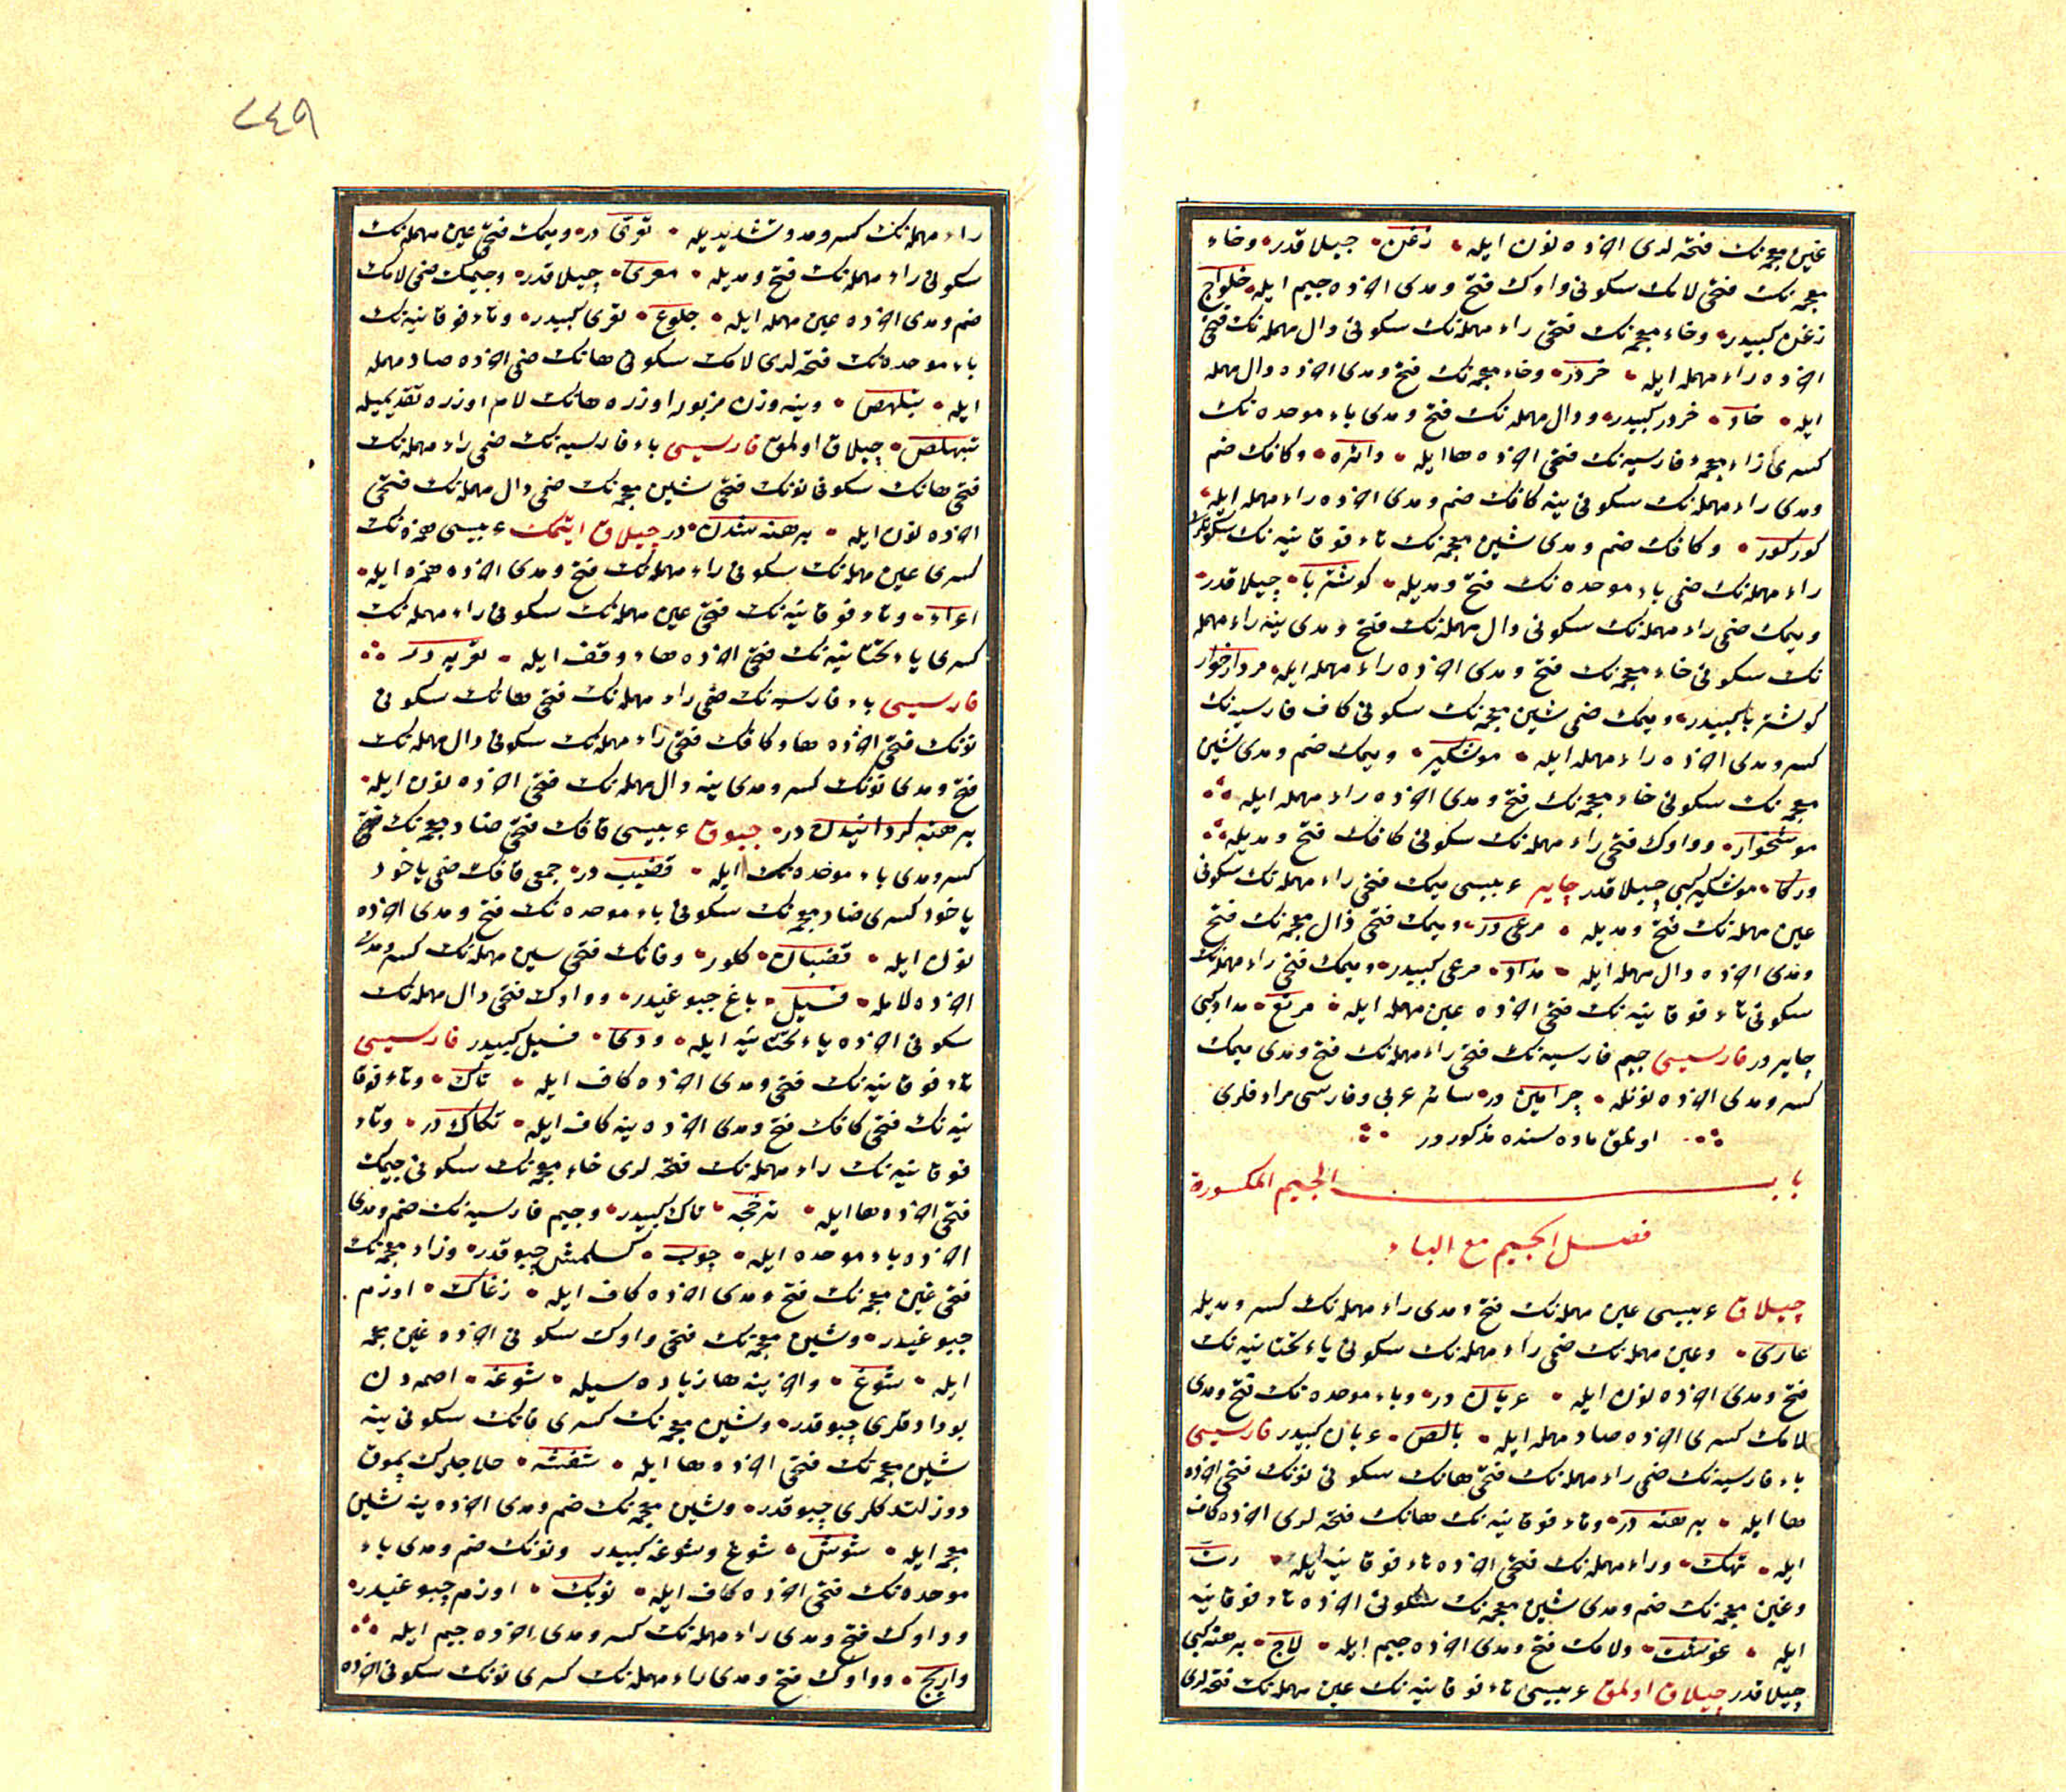 غین معجمه‌نک فتحه‌لری اخرده نون ایله • زغن • جیلاقدر • وخاء
معجمه‌نک فتحی لامک سکونی واوک فتح ومدی اخرده جیم ایله • خلواج
زغن کبیدر • وخاء معجمه‌نک فتحی راء مهمله‌نک سکونی دال مهمله‌نک فتحی
اخرده راء مهمله ایله • خردر • وخاء معجمه‌نک فتح ومدی اخرده دال مهمله
ایله • خاد • خردر کبیدر • ودال مهمله‌نک فتح ومدی باء موحده‌نک
کسری زاء معجمهٔ فارسیه‌نک فتحی اخرده ها ایله • وکافک ضم
ومدی راء مهمله‌نک سکونی ینه کافک ضم ومدی اخرده راء مهمله ایله •
کورکور • وکافک ضم ومدی شین معجمه‌نک تاء فوقانیه‌نک سکونلری
راء مهمله‌نک ضمی باء موحده‌نک فتح ومدیله • کوشتربا • چیلاقدر •
ومیمک ضمی راء مهمله‌نک سکونی دال مهمله‌نک فتح ومدی ینه راء مهمله
نک سکونی خاء معجمه‌نک فتح ومدی اخرده راء مهمله ایله • مردارخوار
کوشتربا کبیدر • ومیمک ضمی شین معجمه‌نک سکونی کاف فارسیه‌نک
کسر ومدی اخرده راء مهمله ایله • موشکیر • ومیمک ضم ومدی شین
معجمه‌نک سکونی خاء معجمه‌نک فتح ومدی اخرده راء مهمله ایله
موشخوار • وواوک فتحی راء مهمله‌نک سکونی کافک فتح ومدیله
ورکا • موشکیر کبی چیلاقدر چایر عربیسی میمک فتحی راء مهمله‌نک سکونی
عین مهمله‌نک فتح ومدیله • مرعی در • ومیمک فتحی ذال معجمه‌نک فتح
ومدی اخرده دال مهمله ایله • مذاد • مرعی کبیدر • ومیمک فتحی راء مهمله‌نک
سکونی تاء فوقانیه‌نک فتحی اخرده عین مهمله ایله • مرتع • مذاد کبی
چایردر فارسیسی جیم فارسیه‌نک فتحی راء مهمله‌نک فتح ومدی میمک
کسر ومدی اخرده نونله • چرامین در • سائر عربی وفارسی مرادفلری
اوتلق ماده‌سنده مذکوردر
باب الجیم المکسورة
فصل الجیم مع الباء
چپلاق عربیسی عین مهمله‌نک فتح ومدی راء مهمله‌نک کسر ومدیله
عاری • وعین مهمله‌نک ضمی راء مهمله‌نک سکونی یاء تحتانیه‌نک
فتح ومدی اخرده نون ایله • عریان در • وباء موحده‌نک فتح ومدی
لامک کسری اخرده صاد مهمله ایله • بالص • عریان کبیدر فارسیسی
باء فارسیه‌نک ضمی راء مهمله‌نک فتحی هانک سکونی نونک فتحی اخرده
ها ایله • برهنه در • وتاء فوقانیه‌نک هانک فتحه‌لری اخرده کاف
ایله • تهک • وراء مهمله‌نک فتحی اخرده تاء فوقانیه ایله • رت
وغین معجمه‌نک ضم ومدی شین معجمه‌نک سکونی اخرده تاء فوقانیه
ایله • غوشت • ولامک فتح ومدی اخرده جیم ایله • لاج • برهنه کبی
چپلاقدر چپلاق اولمق عربیسی تاء فوقانیه‌نک عین مهمله‌نک فتحه‌لری
٢٤٩
راء مهمله‌نک کسر ومد وتشدیدیله • تعری در • ومیمک فتحی عین مهمله‌نک
سکونی راء مهمله‌نک فتح ومدیله • معری • چپلاقدر • وجیمک ضمی لامک
ضم ومدی اخرده عین مهمله ایله • جلوع • تعری کبیدر • وتاء فوقانیه‌نک
باء موحده‌نک فتحه‌لری لامک سکونی هانک ضمی اخرده صاد مهمله
ایله • تبلهص • وینه وزن مزبور اوزره هانک لام اوزره تقدیمیله
تبهلص • چپلاق اولمق فارسیسی باء فارسیه‌نک ضمی راء مهمله‌نک
فتحی هانک سکونی نونک فتحی شین معجمه‌نک ضمی دال مهمله‌نک فتحی
اخرده نون ایله • برهنه شدن در چپلاق ایتمک عربیسی همزه‌نک
کسری عین مهمله‌نک سکونی راء مهمله‌نک فتح ومدی اخرده همزه ایله •
اعراء • وتاء فوقانیه‌نک فتحی عین مهمله‌نک سکونی راء مهمله‌نک
کسری یاء تحتانیه‌نک فتحی اخرده هاء وقف ایله • تعریه در
فارسیسی باء فارسیه‌نک ضمی راء مهمله‌نک فتحی هانک سکونی
نونک فتحی اخرده ها وکافک فتحی راء مهمله‌نک سکونی دال مهمله‌نک
فتح ومدی نونک کسر ومدی ینه دال مهمله‌نک فتحی اخرده نون ایله •
برهنه کردانیدن در • چبوق عربیسی قافک فتحی ضاد معجمه‌نک
کسر ومدی باء موحده‌نک ایله • قضیب در • جمعی قافک ضمی یاخود
یاخود کسری ضاد معجمه‌نک سکونی باء موحده‌نک فتح ومدی اخرده
نون ایله • قضبان • کلور • وفانک فتحی سین مهمله‌نک کسر ومدی
اخرده لامله • فسیل • باغ چبوغیدر • وواوک فتحی دال مهمله‌نک
سکونی اخرده یاء تحتانیه ایله • ودی • فسیل کبیدر فارسیسی
تاء فوقانیه‌نک فتحی ومدی اخرده کاف ایله • تاک • وتاء فوقا
نیه‌نک فتحی کافک فتح ومدی اخرده ینه کاف ایله • تکاک در • وتاء
فوقانیه‌نک راء مهمله‌نک فتحه‌لری خاء معجمه‌نک سکونی جیمک
فتحی اخرده ها ایله • ترخجه • تاک کبیدر • وجیم فارسیه‌نک ضم ومدی
اخرده باء موحده ایله • چوب • کسلمش چبوقدر • وزاء معجمه‌نک
فتحی غین معجمه‌نک فتح ومدی اخرده کاف ایله • زغاک • اوزم
چبوغیدر • وشین معجمه‌نک فتحی واوک سکونی اخرده غین معجمه
ایله • شوغ • واخرینه ها زیاده‌سیله • شوغه • اصمه‌دن
بودادقلری چبوقدر • وشین معجمه‌نک کسری فانک سکونی ینه
شین معجمه‌نک فتحی اخرده ها ایله • شفشه • حلاجلرک پموق
دوزلتدکلری چبوقدر • وشین معجمه‌نک ضم ومدی اخرده ینه شین
معجمه ایله • شوش • شوغ وشوغه کبیدر ونونک ضم ومدی باء
موحده‌نک فتحی اخرده کاف ایله • نوبک • اوزم چبوغیدر •
وواوک فتح ومدی راء مهمله‌نک کسر ومدی اخرده جیم ایله
واریج • وواوک فتح ومدی راء مهمله‌نک کسری نونک سکونی اخرده